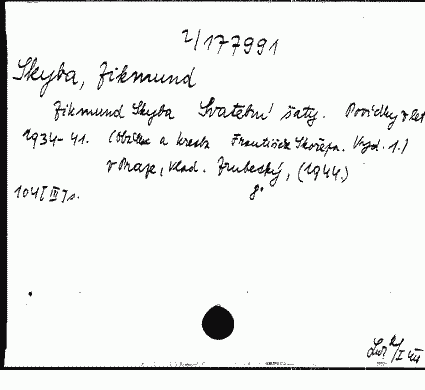 2/177991
Skyba, Zikmund
Zikmund Skyba Svatební šaty. Povídky z let
1934-41. (Obálka a kresba František Skořepa. Vyd. 1.)
v Praze, Vlad. Zrubecký, (1944.)
104[III]s. 8°